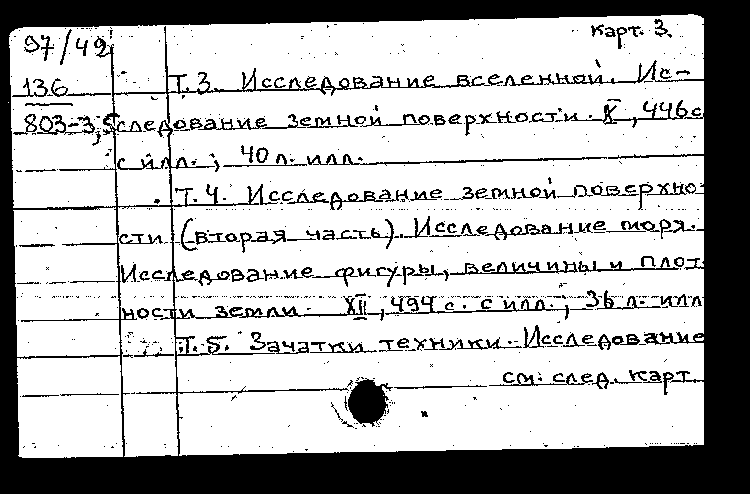 Карт. 3.
97/42
136
803-3,5
Т.3. Исследование вселенной. Ис-
следование земной поверхности. X, 446 с
с илл.; 40 л. илл.
Т.4. Исследование земной поверхно-
сти (вторая часть). Исследование моря.
Исследование фигуры, величины и плот-
ности земли. XII, 494 с. с илл.; 36 л. илл
Т.5. Зачатки техники. Исследование
см. след. карт.